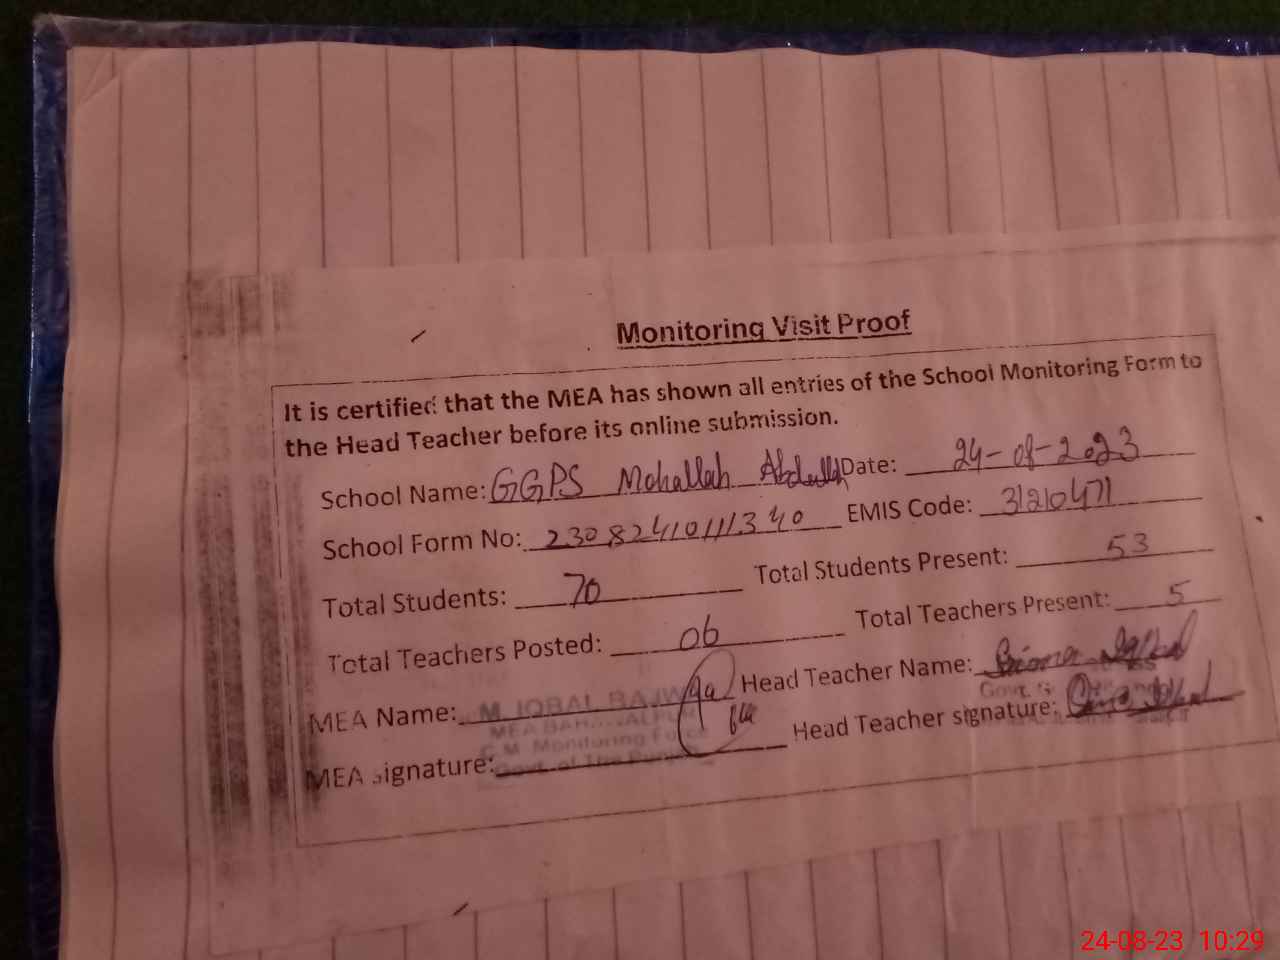 Monitoring Visit Proof
It is certified that the MEA has shown all entries of the School Monitoring Form to
the Head Teacher before its online submission.
School Name: GGPS Mohallah Abdullah Date: 24-08-2023
School Form No: 230824101111340 EMIS Code: 31210471
Total Students: 70 Total Students Present: 53
Total Teachers Posted: 06 Total Teachers Present: 5
MEA Name: M. IQBAL BAJWA Head Teacher Name: Iqbal
MEA BAHAWALPUR
C.M. Monitoring Force
Govt. of The Punjab
MEA signature: Head Teacher signature:
Govt.
24-08-23 10:29